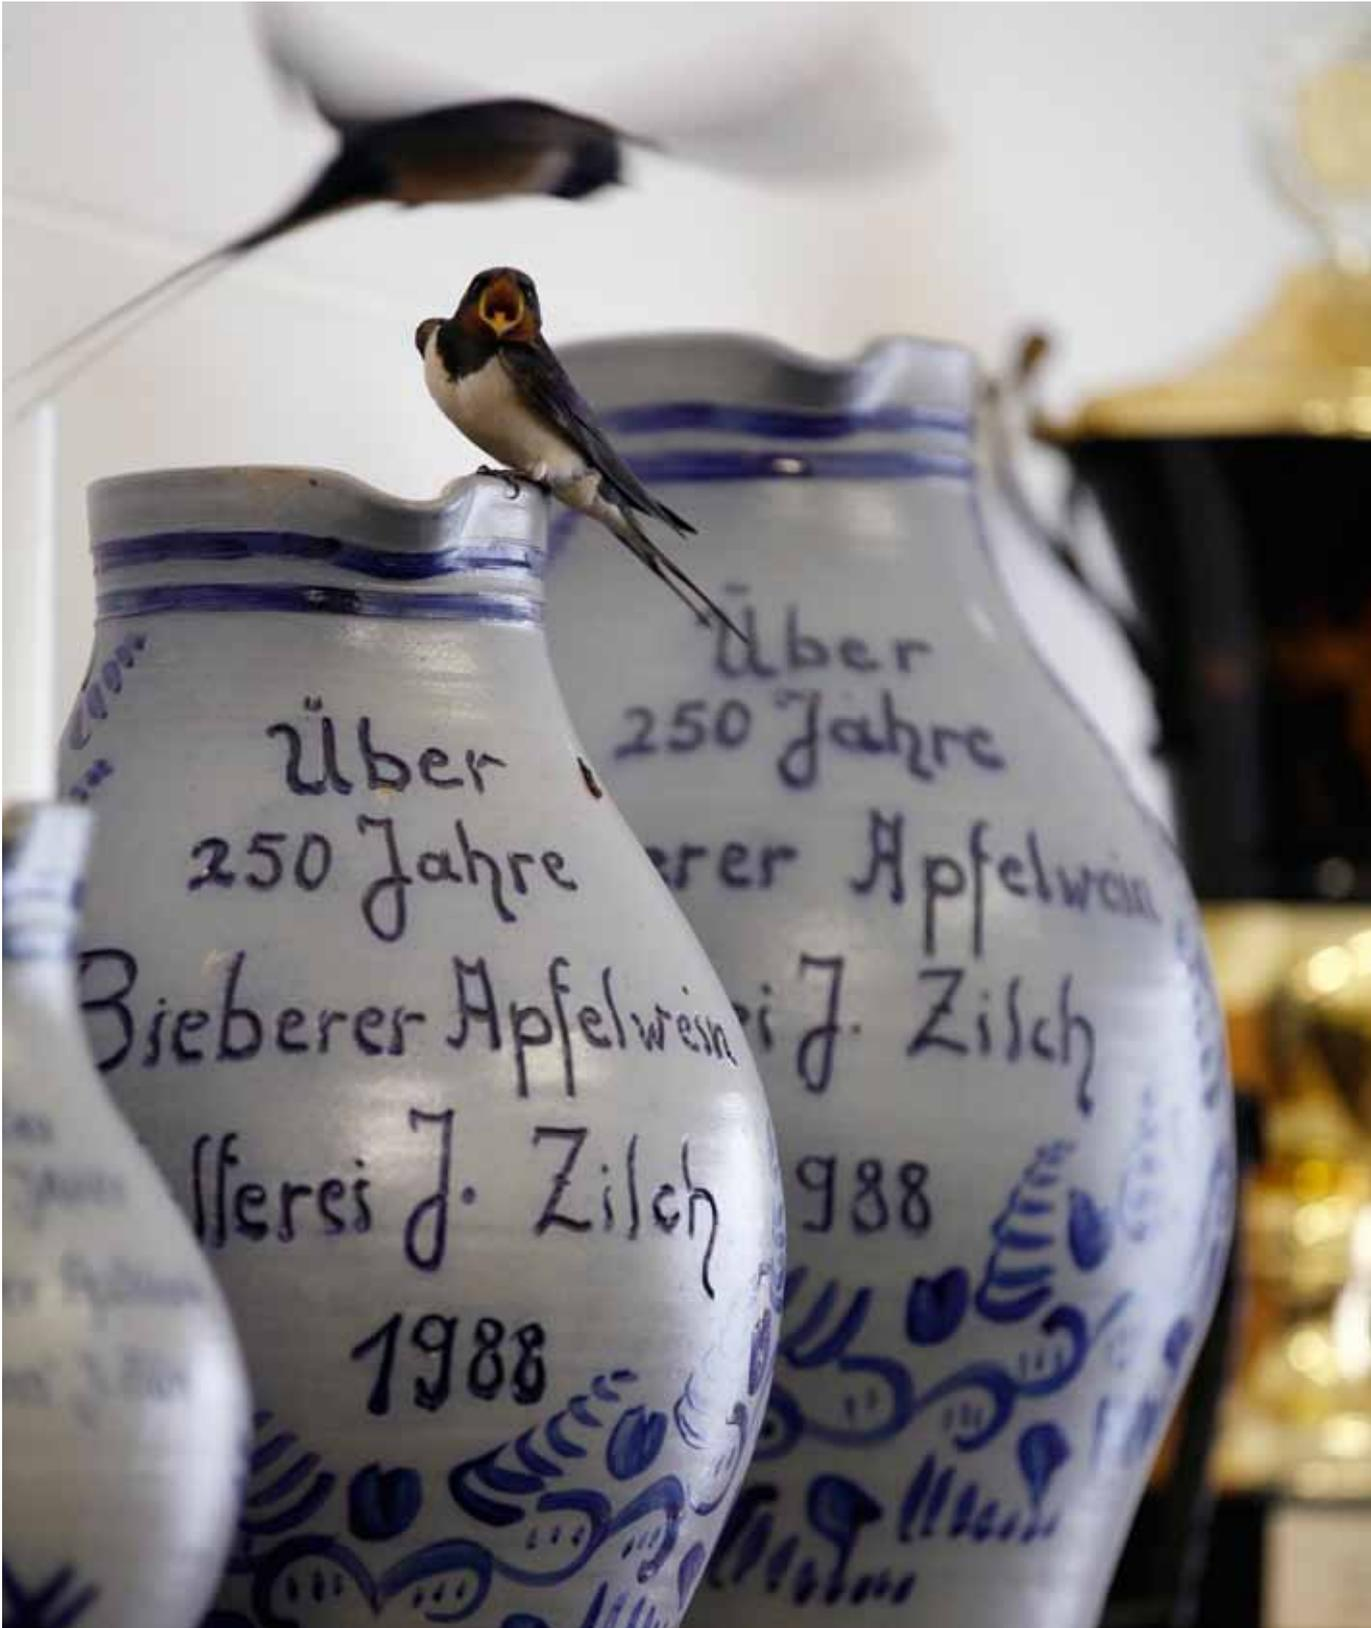 Über
250 Jahre
Bieberer Apfelwein
J. Zilch
1988
Über
250 Jahre
Apfelwein
J. Zilch